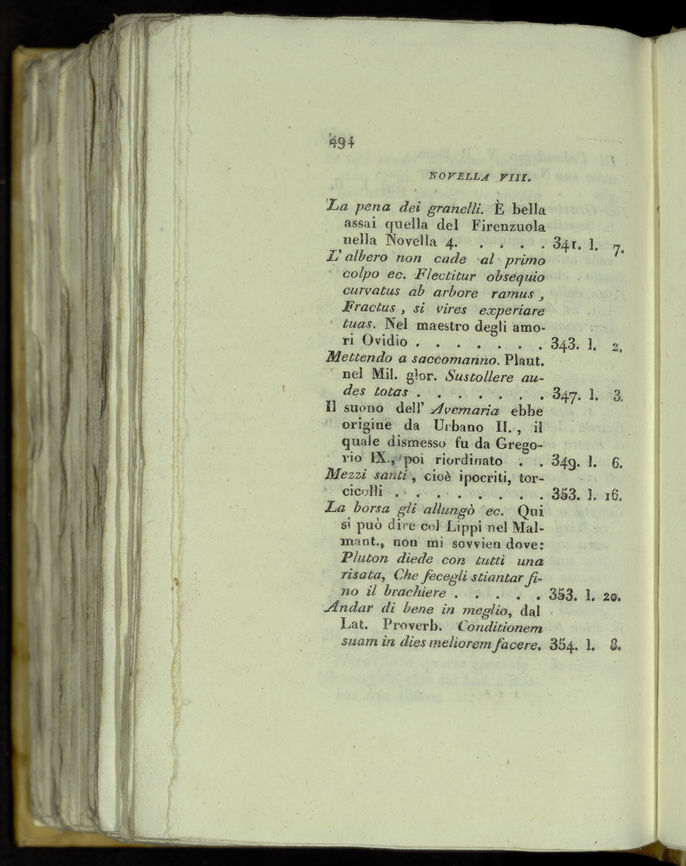 494
NOVELLA VIII.
La pena dei granelli. È bella
assai quella del Firenzuola
nella Novella 4. . . . . 341. l. 7.
L' albero non cade al primo
colpo ec. Flectitur obsequio
curvatus ab arbore ramus ,
Fractus , si vires experiare
tuas. Nel maestro degli amo-
ri Ovidio . . . . . . . 343. l. 2.
Mettendo a saccomanno. Plaut.
nel Mil. glor. Sustollere au-
des totas . . . . . . . 347. l. 3.
Il suono dell' Avemaria ebbe
origine da Urbano II. , il
quale dismesso fu da Grego-
rio IX., poi riordinato . . 349. l. 6.
Mezzi santi , cioè ipocriti, tor-
cicolli . . . . . . . . 353. l. 16.
La borsa gli allungò ec. Qui
si può dire col Lippi nel Mal-
mant., non mi sovvien dove:
Pluton diede con tutti una
risata, Che fecegli stiantar fi-
no il brachiere . . . . . 353. l. 20.
Andar di bene in meglio, dal
Lat. Proverb. Conditionem
suam in dies meliorem facere. 354. l. 8.